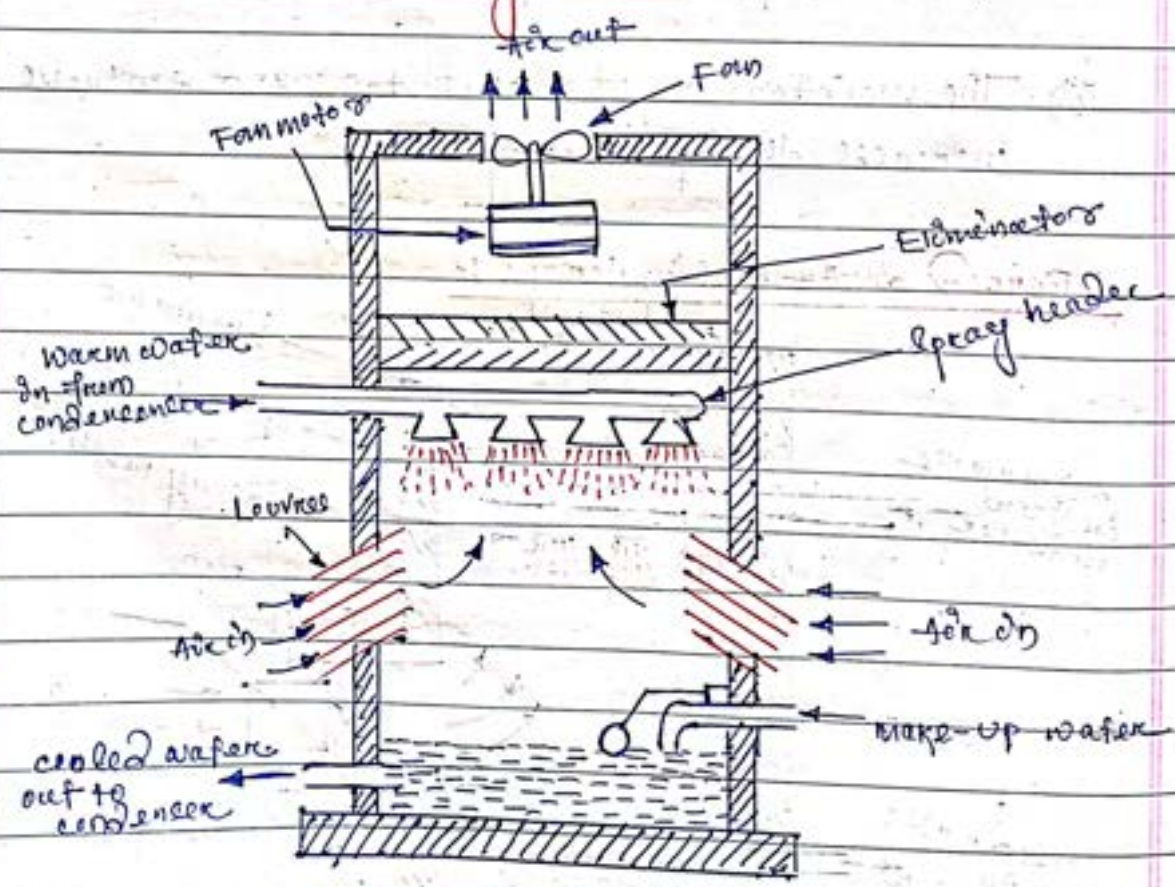 Air out
Fan
Fan motor
Eliminator
Spray header
Warm water
in from
condencencer
Louvres
Air in
Air in
make-up water
cooled water
out to
condencer